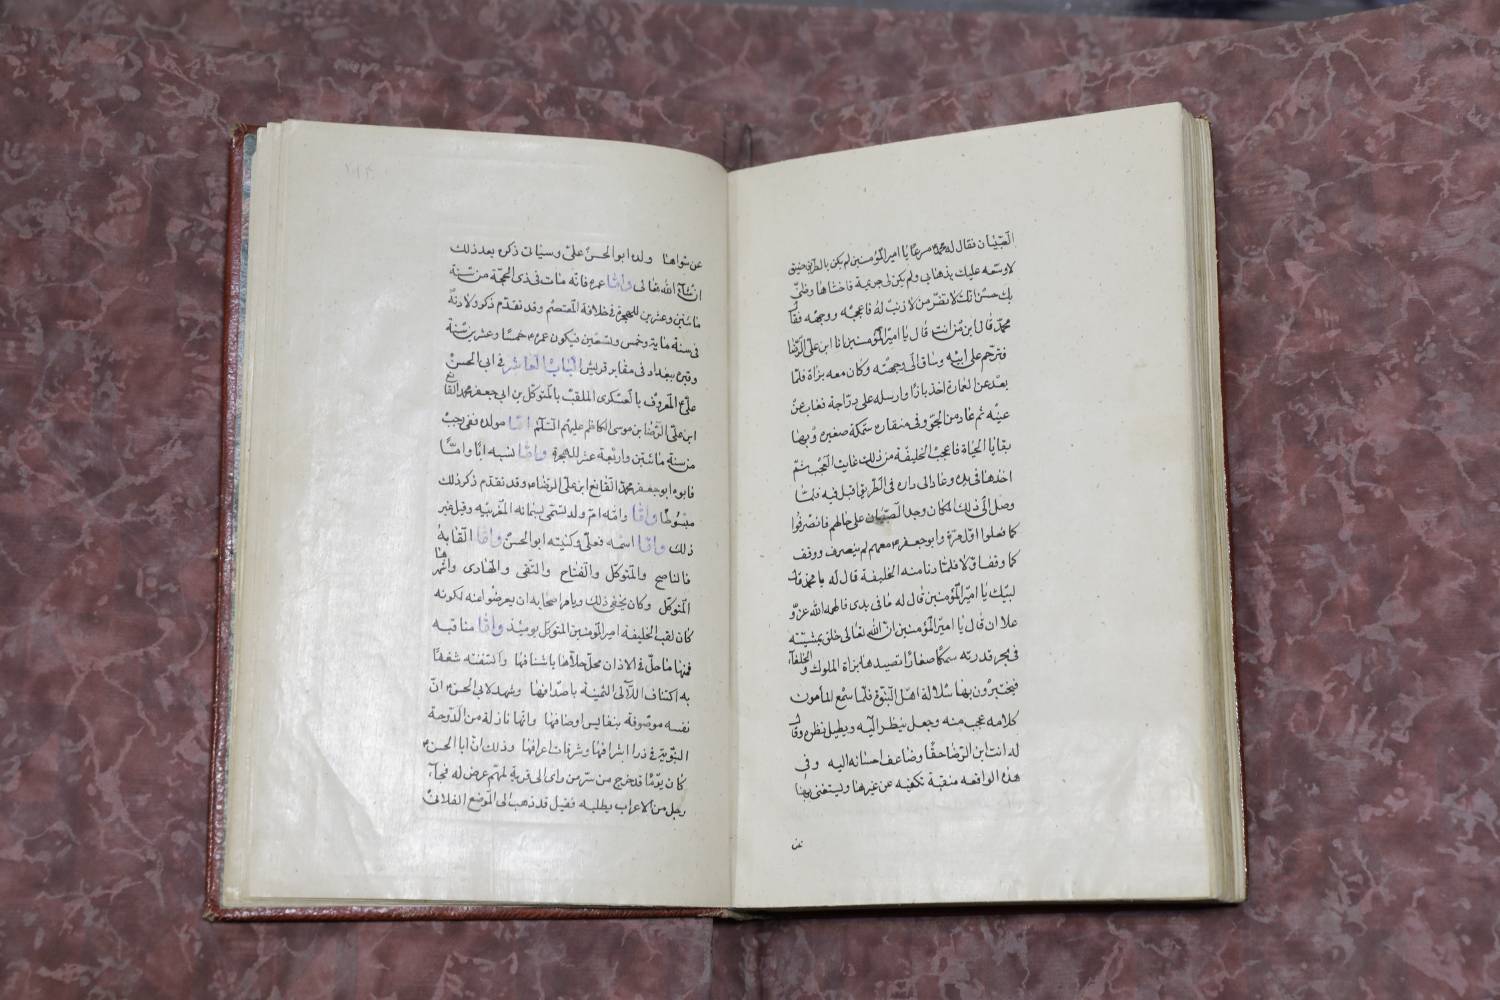 الصبيان فقال له محمد مسرعا يا امير المؤمنين لم يكن بالطريق ضيق
لاوسعه عليك بذهابى ولم يكن لى جريمة فاخشاها وظنى
بك حسن انك لا تضر من لا ذنب له فاعجبه ووجهه فقال
محمد قال ابن من انت قال يا امير المؤمنين انا ابن على الرضا
فترحم على ابيه وساق الى وجهته وكان معه بزاة فلما
بعد عن العمارة اخذ بازا وارسله على دراجة فغاب عن
عينه ثم عاد من الجو وفى منقاره سمكة صغيرة وبها
بقايا الحياة فاعجب الخليفة من ذلك غاية العجب ثم
اخذها فى يده وعاد الى داره فى الطريق اقبل فيه فلما
وصل الى ذلك المكان وجد الصبيان على حالهم فانصرفوا
كما فعلوا اول مرة وابو جعفر معهم لم ينصرف ووقف
كما وقف اولا فلما دنا منه الخليفة قال له يا محمد قال
لبيك يا امير المؤمنين قال له ما فى يدى فالهمه الله عز و
علا ان قال يا امير المؤمنين ان الله تعالى خلق بمشيته
فى بحر قدرته سمكا صغارا تصيدها بزاة الملوك والخلفاء
فيختبرون بها سلالة اهل النبوة فلما سمع المأمون
كلامه عجب منه وجعل ينظر اليه ويطيل نظره وقال
له انت ابن الرضا حقا وضاعف احسانه اليه وفى
هذه الواقعه منقبة تكفيه عن غيرها ويستغنى بها
عن
عن سواها ولده ابو الحسن على وسياتى ذكره بعد ذلك
ان شاء الله تعالى واما عمره فانه مات فى ذى الحجة من سنة
مائتين وعشرين للهجرة فى خلافة المعتصم وقد تقدم ذكر ولادته
فى سنة ماية وخمس وتسعين فيكون عمره خمسا وعشرين سنة
وقبره ببغداد فى مقابر قريش الباب العاشر فى ابى الحسن
على المعروف بالعسكرى الملقب بالمتوكل بن ابى جعفر محمد القانع
ابن على الرضا بن موسى الكاظم عليهم السلام اما مولده ففى رجب
من سنة مائتين واربعة عشر للهجرة واما نسبه ابا واما
فابوه ابو جعفر محمد القانع ابن على الرضا وقد تقدم ذكر ذلك
مبسوطا واما وامه ام ولد تسمى سمانه المغربيه وقيل غير
ذلك واما اسمه فعلى وكنيته ابو الحسن واما القابه
فالناصح والمتوكل والفتاح والنقى والهادى واشهرها
المتوكل وكان يخفى ذلك ويامر اصحابه ان يعرضوا عنه لكونه
كان لقب الخليفة امير المؤمنين المتوكل يوميذ واما مناقبه
فمنها ما حل فى الاذان محل حلاها باشنافها واكتنفته شغفا
به اكتناف اللآلى الثمينة باصدافها وشهد لابى الحسن ان
نفسه موصوفة بنفايس اوصافها وانها نازلة من الدوحة
النبوية فى ذرا اشرافها وشرفات اعرافها وذلك ان ابا الحسن
كان يوما قد خرج من سر من راى الى قرية لمهم عرض له فجاء
رجل من الاعراب يطلبه فقيل قد ذهب الى الموضع الفلانى